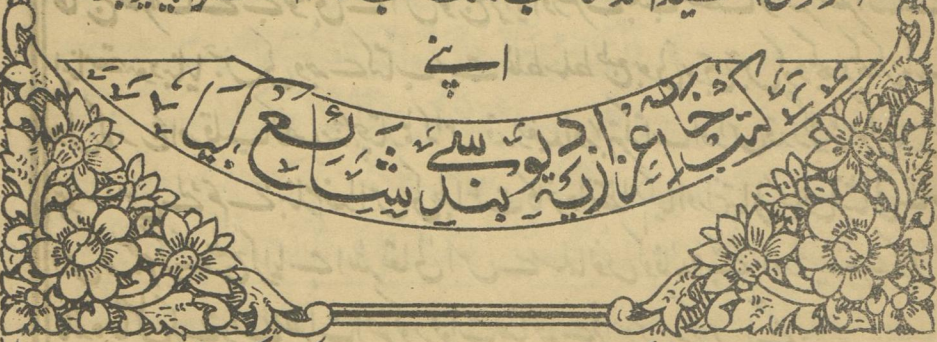 اپنے
کتب خانہ اعزازیہ دیوبند سے شائع کیا